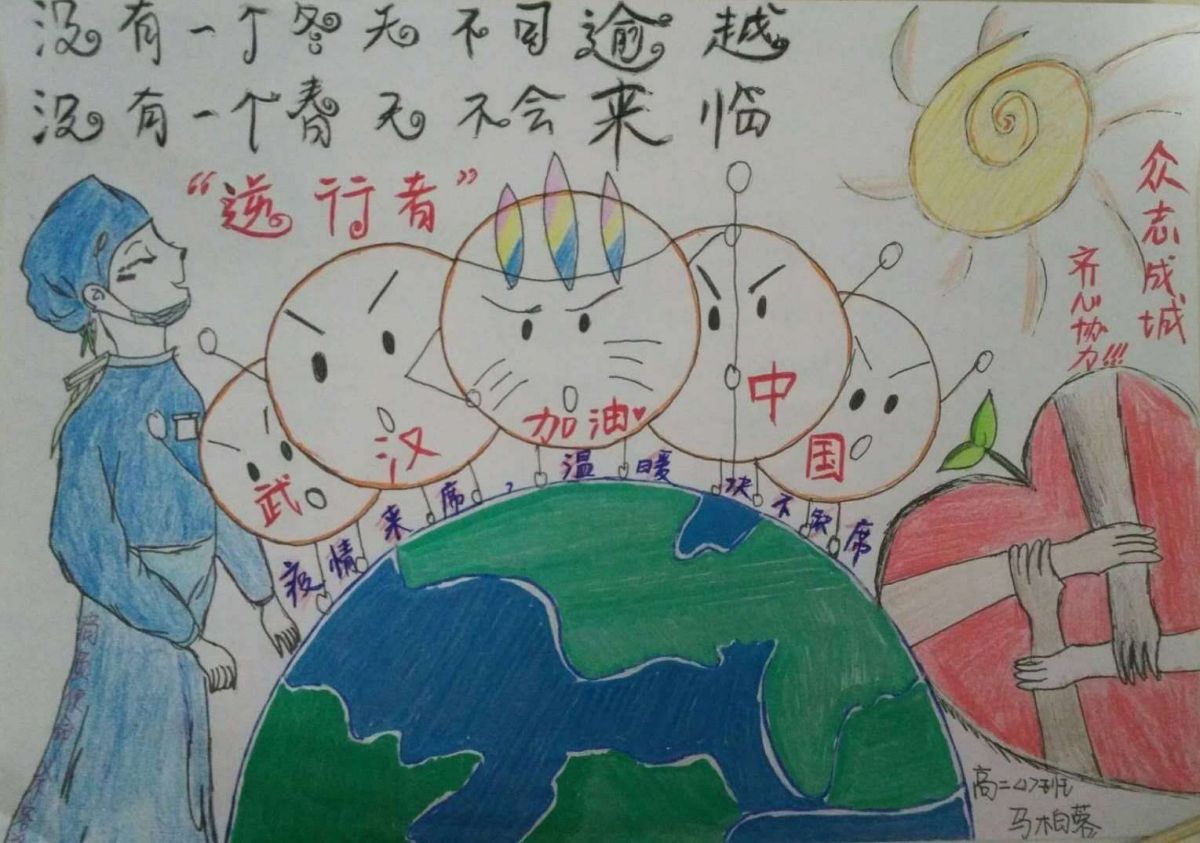 没有一个冬天不可逾越
没有一个春天不会来临
“逆行者”
众志成城
齐心协力!!!
武汉加油♥中国
疫情来席，温暖决不缺席
马柏蓉